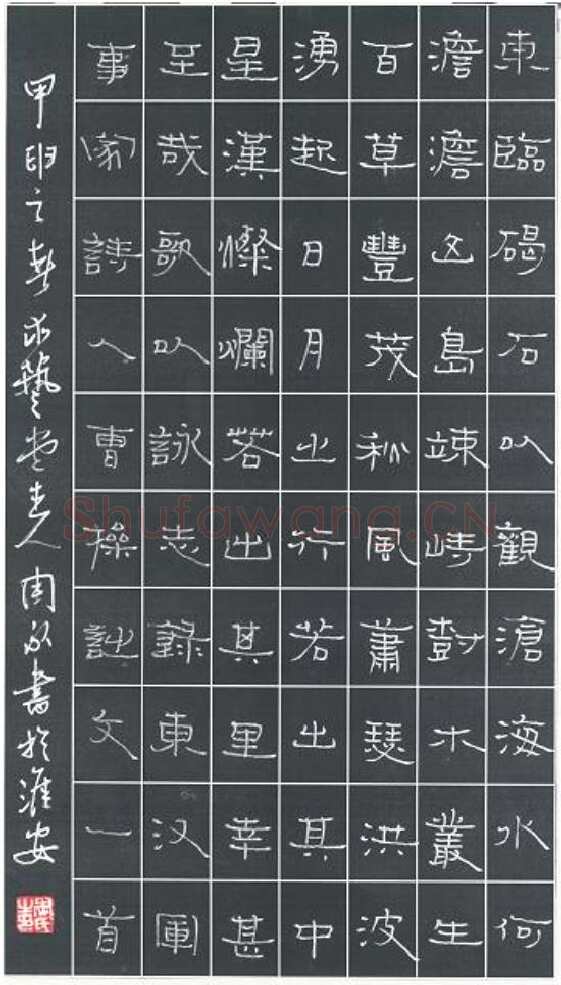 東臨碣石以觀滄海水何
澹澹山島竦峙樹木叢生
百草豐茂秋風蕭瑟洪波
湧起日月之行若出其中
星漢燦爛若出其里幸甚
至哉歌以詠志錄東汉軍
事家詩人曹操詩文一首
甲申之春求藝堂主人周書於淮安
Shufawang.CN